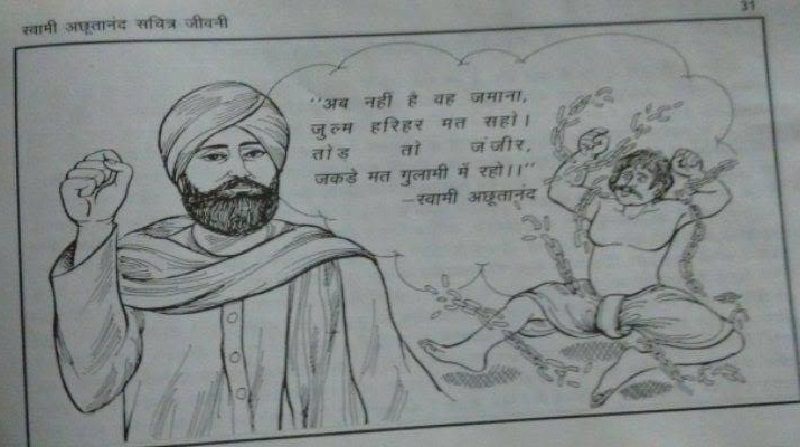 31
स्वामी अछूतानंद सचित्र जीवनी
"अब नहीं है वह जमाना,
जुल्म हरिहर मत सहो।
तोड तो जंजीर,
जकडे मत गुलामी में रहो।।"
–स्वामी अछूतानंद